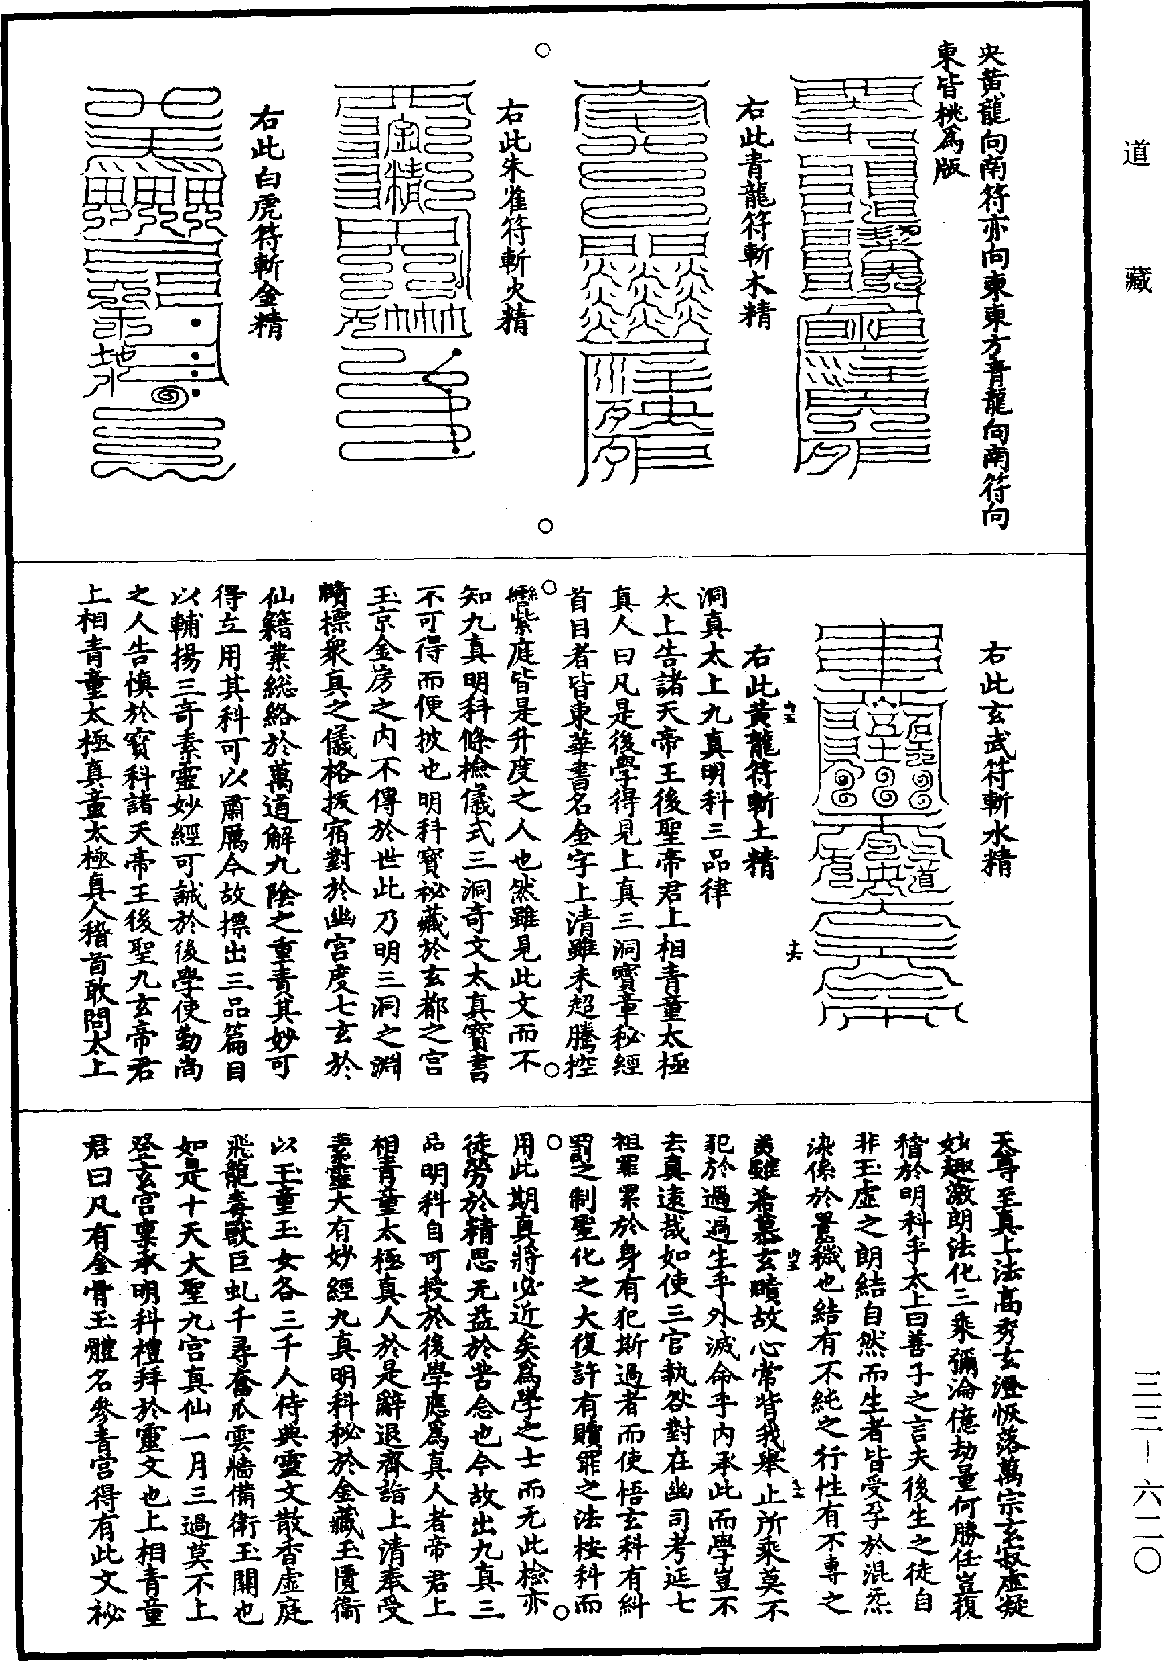 道藏
央黃龍向南符亦向東東方青龍向南符向
東皆桃為版
右此青龍符斬木精
右此朱雀符斬火精
金精
右此白虎符斬金精
地水
右此玄武符斬水精
右此黃龍符斬土精
洞真太上九真明科三品律
太上告諸天帝王後聖帝君上相青童太極
真人曰凡是後學得見上真三洞寶章秘經
首目者皆東華書名金字上清雖未超騰控
轡紫庭皆是升度之人也然雖見此文而不
知九真明科條檢儀式三洞奇文太真寶書
不可得而便披也明科寶祕藏於玄都之宮
玉京金房之內不傳於世此乃明三洞之淵
賾標眾真之儀格拔宿對於幽宮度七玄於
仙籍業總絡於萬道解九陰之重責其妙可
得立用其科可以肅厲今故標出三品篇目
以輔揚三奇素靈妙經可誡於後學使勤尚
之人告慎於寶科諸天帝王後聖九玄帝君
上相青童太極真童太極真人稽首敢問太上
天尊至真上法高秀玄澄恢落萬宗玄寂虛凝
妙趣激朗法化三乘彌淪億劫量何勝任豈復
稽於明科乎太上曰善子之言夫後生之徒自
非玉虛之朗結自然而生者皆受孕於混炁
染係於囂穢也結有不純之行性有不專之
夷雖希慕玄賾故心常皆我舉止所乘莫不
犯於過過生乎外滅命乎內承此而學豈不
去真遠哉如使三官執欲對在幽司考延七
祖罪累於身有犯斯過者而使悟玄科有糾
罰之制聖化之大復許有贖罪之法按科而
用此期真將必近矣為學之士而无此檢亦
徒勞於精思无益於苦念也今故出九真三
品明科自可授於後學應為真人者帝君上
相青童太極真人於是辭退齋詣上清奉受
素靈大有妙經九真明科秘於金藏玉匱衛
以玉童玉女各三千人侍典靈文散香虛庭
飛龍毒獸巨虬千尋奮爪雲牆備衛玉關也
如是十天大聖九宮真仙一月三過莫不上
登玄宮稟承明科禮拜於靈文也上相青童
君曰凡有金骨玉體名參青宮得有此文祕
三三－六二〇